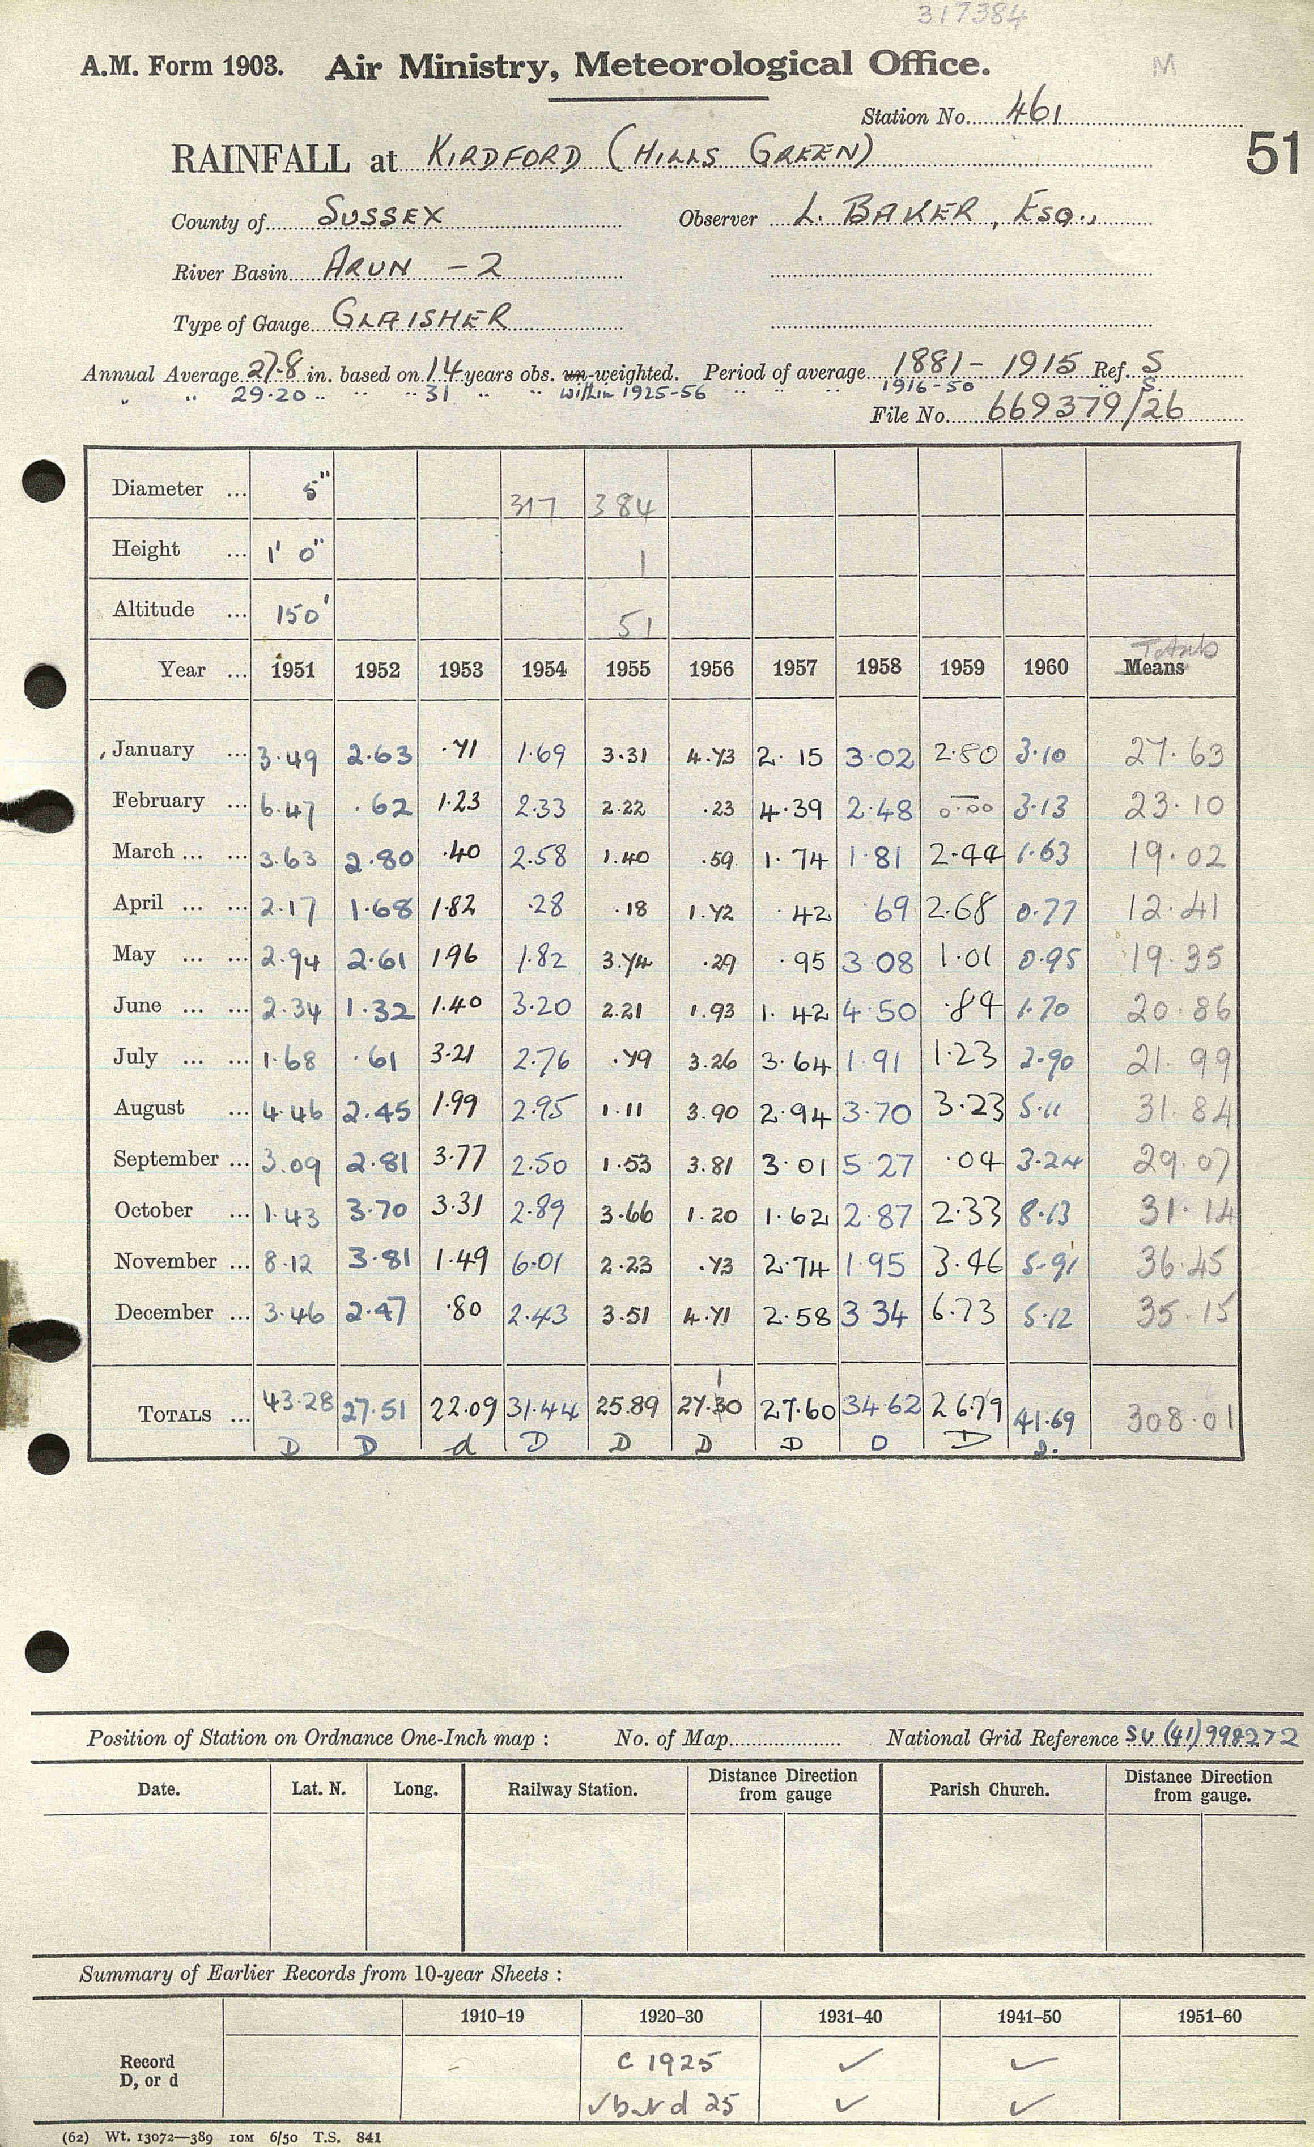 317384
A.M. Form 1903. Air Ministry, Meteorological Office. M
Station No. 461
RAINFALL at KIRDFORD (HILLS GREEN) 51
County of SUSSEX Observer L. BAKER, ESQ.,
River Basin ARUN - 2
Type of Gauge GLAISHER
Annual Average 27.8 in. based on 14 years obs. un-weighted. Period of average 1881 - 1915 Ref. S
" " 29.20 " " " 31 " " within 1925-56 " " " 1916-50 S.
File No. 669379/26
Diameter ... 5" 317 384
Height ... 1' 0" 1
Altitude ... 150' 51
Totals
Year ... 1951 1952 1953 1954 1955 1956 1957 1958 1959 1960 Means
January ... 3.49 2.63 .71 1.69 3.31 4.73 2.15 3.02 2.80 3.10 27.63
February ... 6.47 .62 1.23 2.33 2.22 .23 4.39 2.48 0.00 3.13 23.10
March ... ... 3.63 2.80 .40 2.58 1.40 .59 1.74 1.81 2.44 1.63 19.02
April ... ... 2.17 1.68 1.82 .28 .18 1.72 .42 69 2.68 0.77 12.41
May ... ... 2.94 2.61 1.96 1.82 3.74 .29 .95 3 08 1.01 0.95 19.35
June ... ... 2.34 1.32 1.40 3.20 2.21 1.93 1.42 4.50 .84 1.70 20.86
July ... ... 1.68 .61 3.21 2.76 .79 3.26 3.64 1.91 1.23 2.90 21.99
August ... 4.46 2.45 1.99 2.95 1.11 3.90 2.94 3.70 3.23 5.11 31.84
September ... 3.09 2.81 3.77 2.50 1.53 3.81 3.01 5.27 .04 3.24 29.07
October ... 1.43 3.70 3.31 2.89 3.66 1.20 1.62 2.87 2.33 8.13 31.14
November ... 8.12 3.81 1.49 6.01 2.23 .73 2.74 1.95 3.46 5.91 36.45
December ... 3.46 2.47 .80 2.43 3.51 4.71 2.58 3 34 6.73 5.12 35.15
TOTALS ... 43.28 27.51 22.09 31.44 25.89 27.30 27.60 34.62 26.79 41.69 308.01
D D d D D D D D D D.
Position of Station on Ordnance One-Inch map : No. of Map National Grid Reference SU (41) 998272
Date. Lat. N. Long. Railway Station. Distance Direction from gauge Parish Church. Distance Direction from gauge.
Summary of Earlier Records from 10-year Sheets :
1910–19 1920–30 1931–40 1941–50 1951–60
Record - c 1925 ✓ ✓
D, or d ✓ but d 25 ✓ ✓
(62) Wt. 13072—389 10M 6/50 T.S. 841